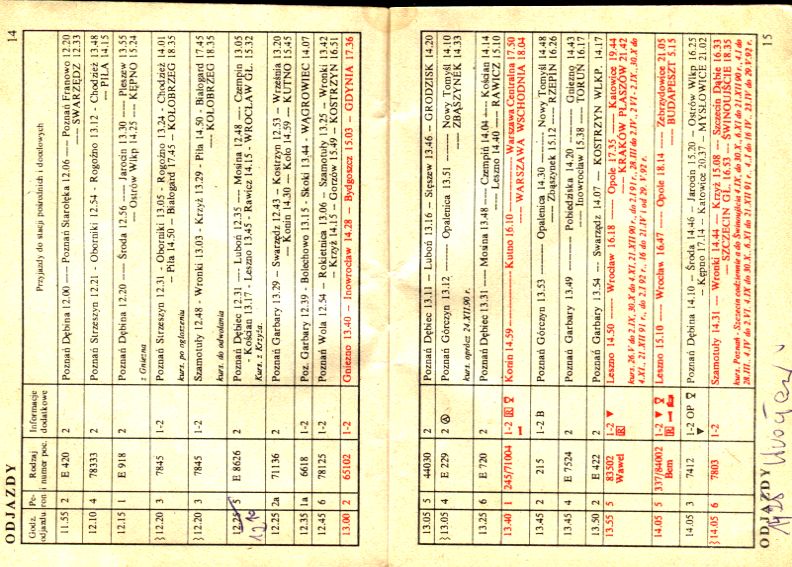 14
ODJAZDY
Godz. odjazdu Pe- ron Rodzaj i numer poc. Informacje dodatkowe Przyjazdy do stacji pośrednich i docelowych
11.55 2 E 420 2 Poznań Dębina 12.00 ---- Poznań Starołęka 12.06 ---- Poznań Franowo 12.20
---- SWARZĘDZ 12.33
12.10 4 78333 2 Poznań Strzeszyn 12.21 - Oborniki 12.54 - Rogoźno 13.12 - Chodzież 13.48
--- PIŁA 14.15
12.15 1 E 918 2 Poznań Dębina 12.20 ---- Środa 12.56 ---- Jarocin 13.30 ---- Pleszew 13.55
z Gniezna ---- Ostrów Wlkp 14.25 ---- KĘPNO 15.24
12.20 3 7845 1-2 Poznań Strzeszyn 12.31 - Oborniki 13.05 - Rogoźno 13.24 - Chodzież 14.01
kurs. po ogłoszeniu - Piła 14.50 - Białogard 17.45 - KOŁOBRZEG 18.35
12.20 3 7845 1-2 Szamotuły 12.48 - Wronki 13.03 - Krzyż 13.29 - Piła 14.50 - Białogard 17.45
kurs. do odwołania - KOŁOBRZEG 18.35
12.25 5 E 8626 2 Poznań Dębiec 12.31 ---- Luboń 12.35 ---- Mosina 12.48 ---- Czempiń 13.05
- Kościan 13.17 - Leszno 13.45 - Rawicz 14.15 - WROCŁAW GŁ. 15.32
12.10
Kurs. z Krzyża.
12.25 2a 71136 2 Poznań Garbary 13.29 - Swarzędz 12.43 - Kostrzyn 12.53 - Września 13.20
- Konin 14.30 --- Koło 14.59 --- KUTNO 15.45
12.35 1a 6618 1-2 Poz. Garbary 12.39 - Bolechowo 13.15 - Skoki 13.44 - WĄGROWIEC 14.07
12.45 6 78125 1-2 Poznań Wola 12.54 - Rokietnica 13.06 - Szamotuły 13.25 - Wronki 13.42
- Krzyż 14.15 - Gorzów 15.49 - KOSTRZYN 16.51
13.00 2 65102 1-2 Gniezno 13.40 -- Inowrocław 14.28 - Bydgoszcz 15.03 - GDYNIA 17.36
13.05 5 44030 2 Poznań Dębiec 13.11 -- Luboń 13.16 -- Stęszew 13.46 -- GRODZISK 14.20
13.05 4 E 229 2 Poznań Górczyn 13.12 ---- Opalenica 13.51 ---- Nowy Tomyśl 14.10
kurs. oprócz 24.XII.90 r. ---- ZBĄSZYNEK 14.33
13.25 6 E 720 2 Poznań Dębiec 13.31 ---- Mosina 13.48 ---- Czempiń 14.04 ---- Kościan 14.14
---- Leszno 14.40 ---- RAWICZ 15.10
13.40 1 245/71004 1-2 R Konin 14.59 ---- Kutno 16.10 ---- Warszawa Centralna 17.50
---- WARSZAWA WSCHODNIA 18.04
13.45 2 215 1-2 B Poznań Górczyn 13.53 ---- Opalenica 14.30 ---- Nowy Tomyśl 14.48
---- Zbąszynek 15.12 ---- RZEPIN 16.26
13.45 4 E 7524 2 Poznań Garbary 13.49 ---- Pobiedziska 14.20 ---- Gniezno 14.43
---- Inowrocław 15.38 ---- TORUŃ 16.17
13.50 2 E 422 2 Poznań Garbary 13.54 --- Swarzędz 14.07 --- KOSTRZYN WLKP. 14.17
13.55 5 83502 Wawel 1-2 R Leszno 14.50 ---- Wrocław 16.18 ---- Opole 17.35 ---- Katowice 19.44
---- KRAKÓW PŁASZÓW 21.42
14.05 5 337/84002 Bem 1-2 R Leszno 15.10 ---- Wrocław 16.47 ---- Opole 18.14 ---- Zebrzydowice 21.05
---- BUDAPESZT 5.15
14.05 3 7412 1-2 OP Poznań Dębina 14.10 - Środa 14.46 - Jarocin 15.20 - Ostrów Wlkp 16.25
- Kępno 17.14 - Katowice 20.37 - MYSŁOWICE 21.02
14.05 6 7803 1-2 Szamotuły 14.31 --- Wronki 14.44 - Krzyż 15.08 --- Szczecin Dąbie 16.33
--- SZCZECIN GŁ. 16.53 --- ŚWINOUJŚCIE 18.35
ODJAZDY
15